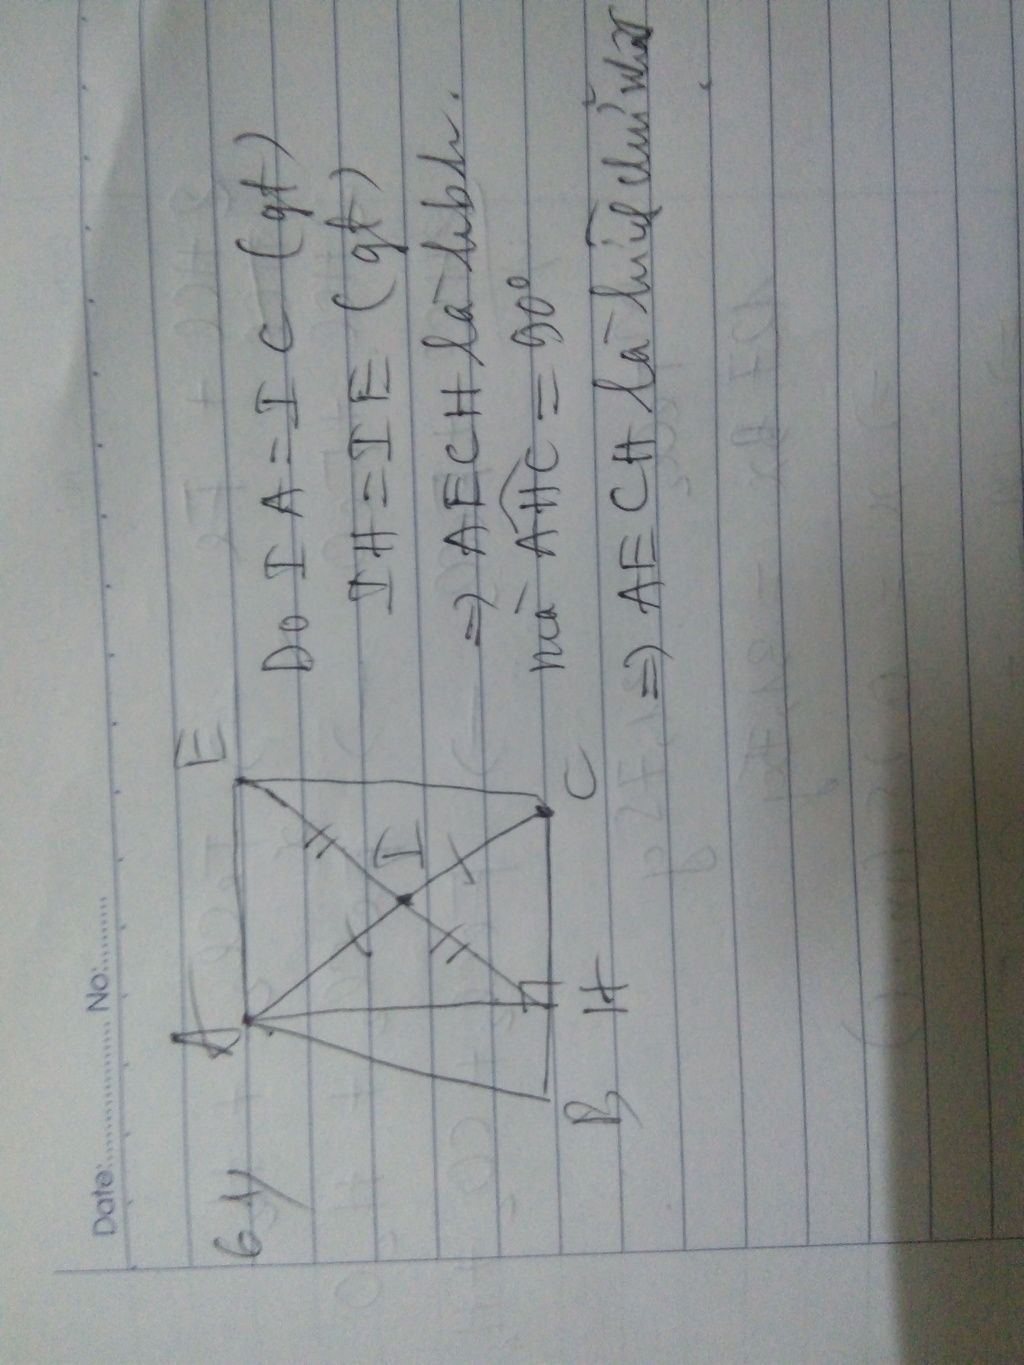 Date:............... No:............
61/
A
E
I
B
H
C
Do IA = IC (gt)
IH = IE (gt)
=> AECH là hbh.
mà AHC = 90°
=> AECH là hình chữ nhật.